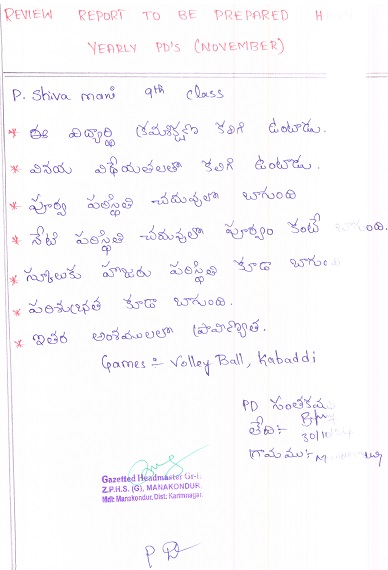 REVIEW REPORT TO BE PREPARED H
YEARLY PD'S (NOVEMBER)
P. Shiva mani 9th class
* ఈ విద్యార్థి క్రమశిక్షణ కలిగి ఉంటాడు.
* వినయ విధేయతలతో కలిగి ఉంటాడు.
* పూర్వ పరిస్థితి చదువులో బాగుంది
* నేటి పరిస్థితి చదువులో పూర్వం కంటే బాగుంది.
* స్కూలుకు హాజరు పరిస్థితి కూడా బాగుంది
* పరిశుభ్రత కూడా బాగుంది.
* ఇతర అంశములలో ప్రావిణ్యత.
Games :- Volley Ball, Kabaddi
PD సంతకము
తేది:- 30/11/
గ్రామము:-
Gazetted Headmaster Gr-I.
Z.P.H.S. (G), MANAKONDUR.
Mdl: Manakondur, Dist: Karimnagar.
P D